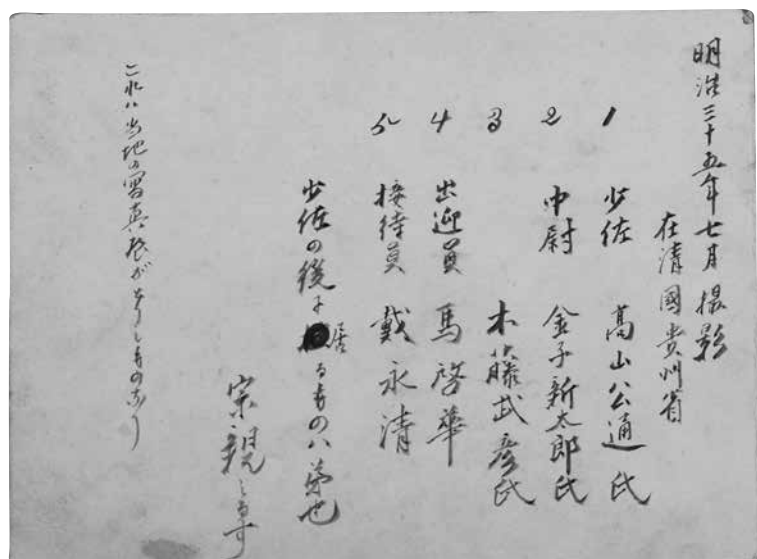 明治三十五年七月撮影
在清國貴州省
1 少佐 高山公通氏
2 中尉 金子新太郎氏
3 木藤武彦氏
4 出迎員 馬啓華
5 接待員 戴永清
少佐の後ニ居るものハ弟也
宗親
これハ当地の写真板がとりしものなり